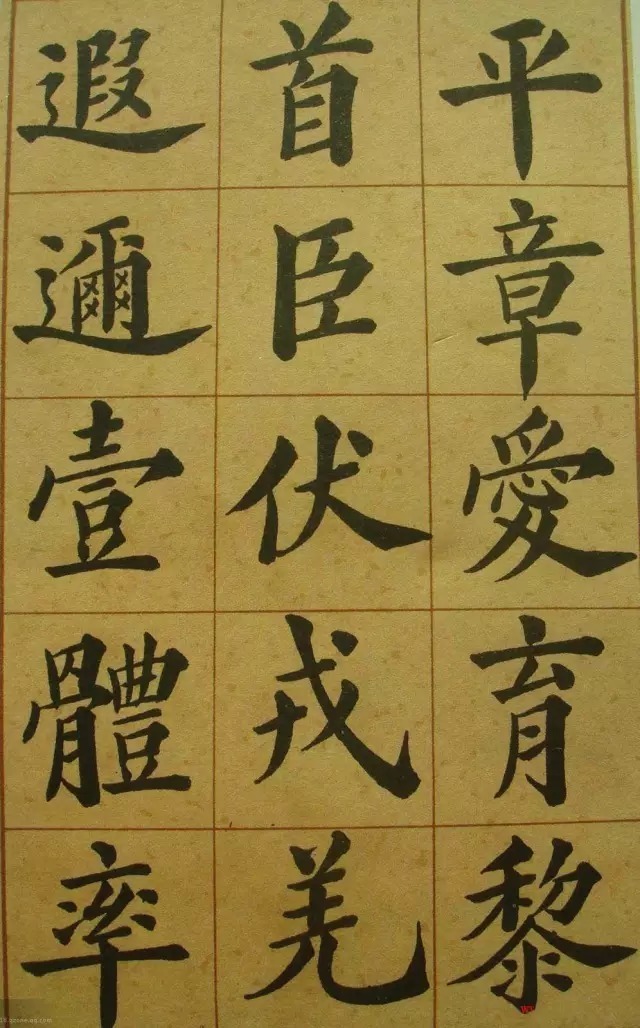 平章愛育黎
首臣伏戎羌
遐邇壹體率